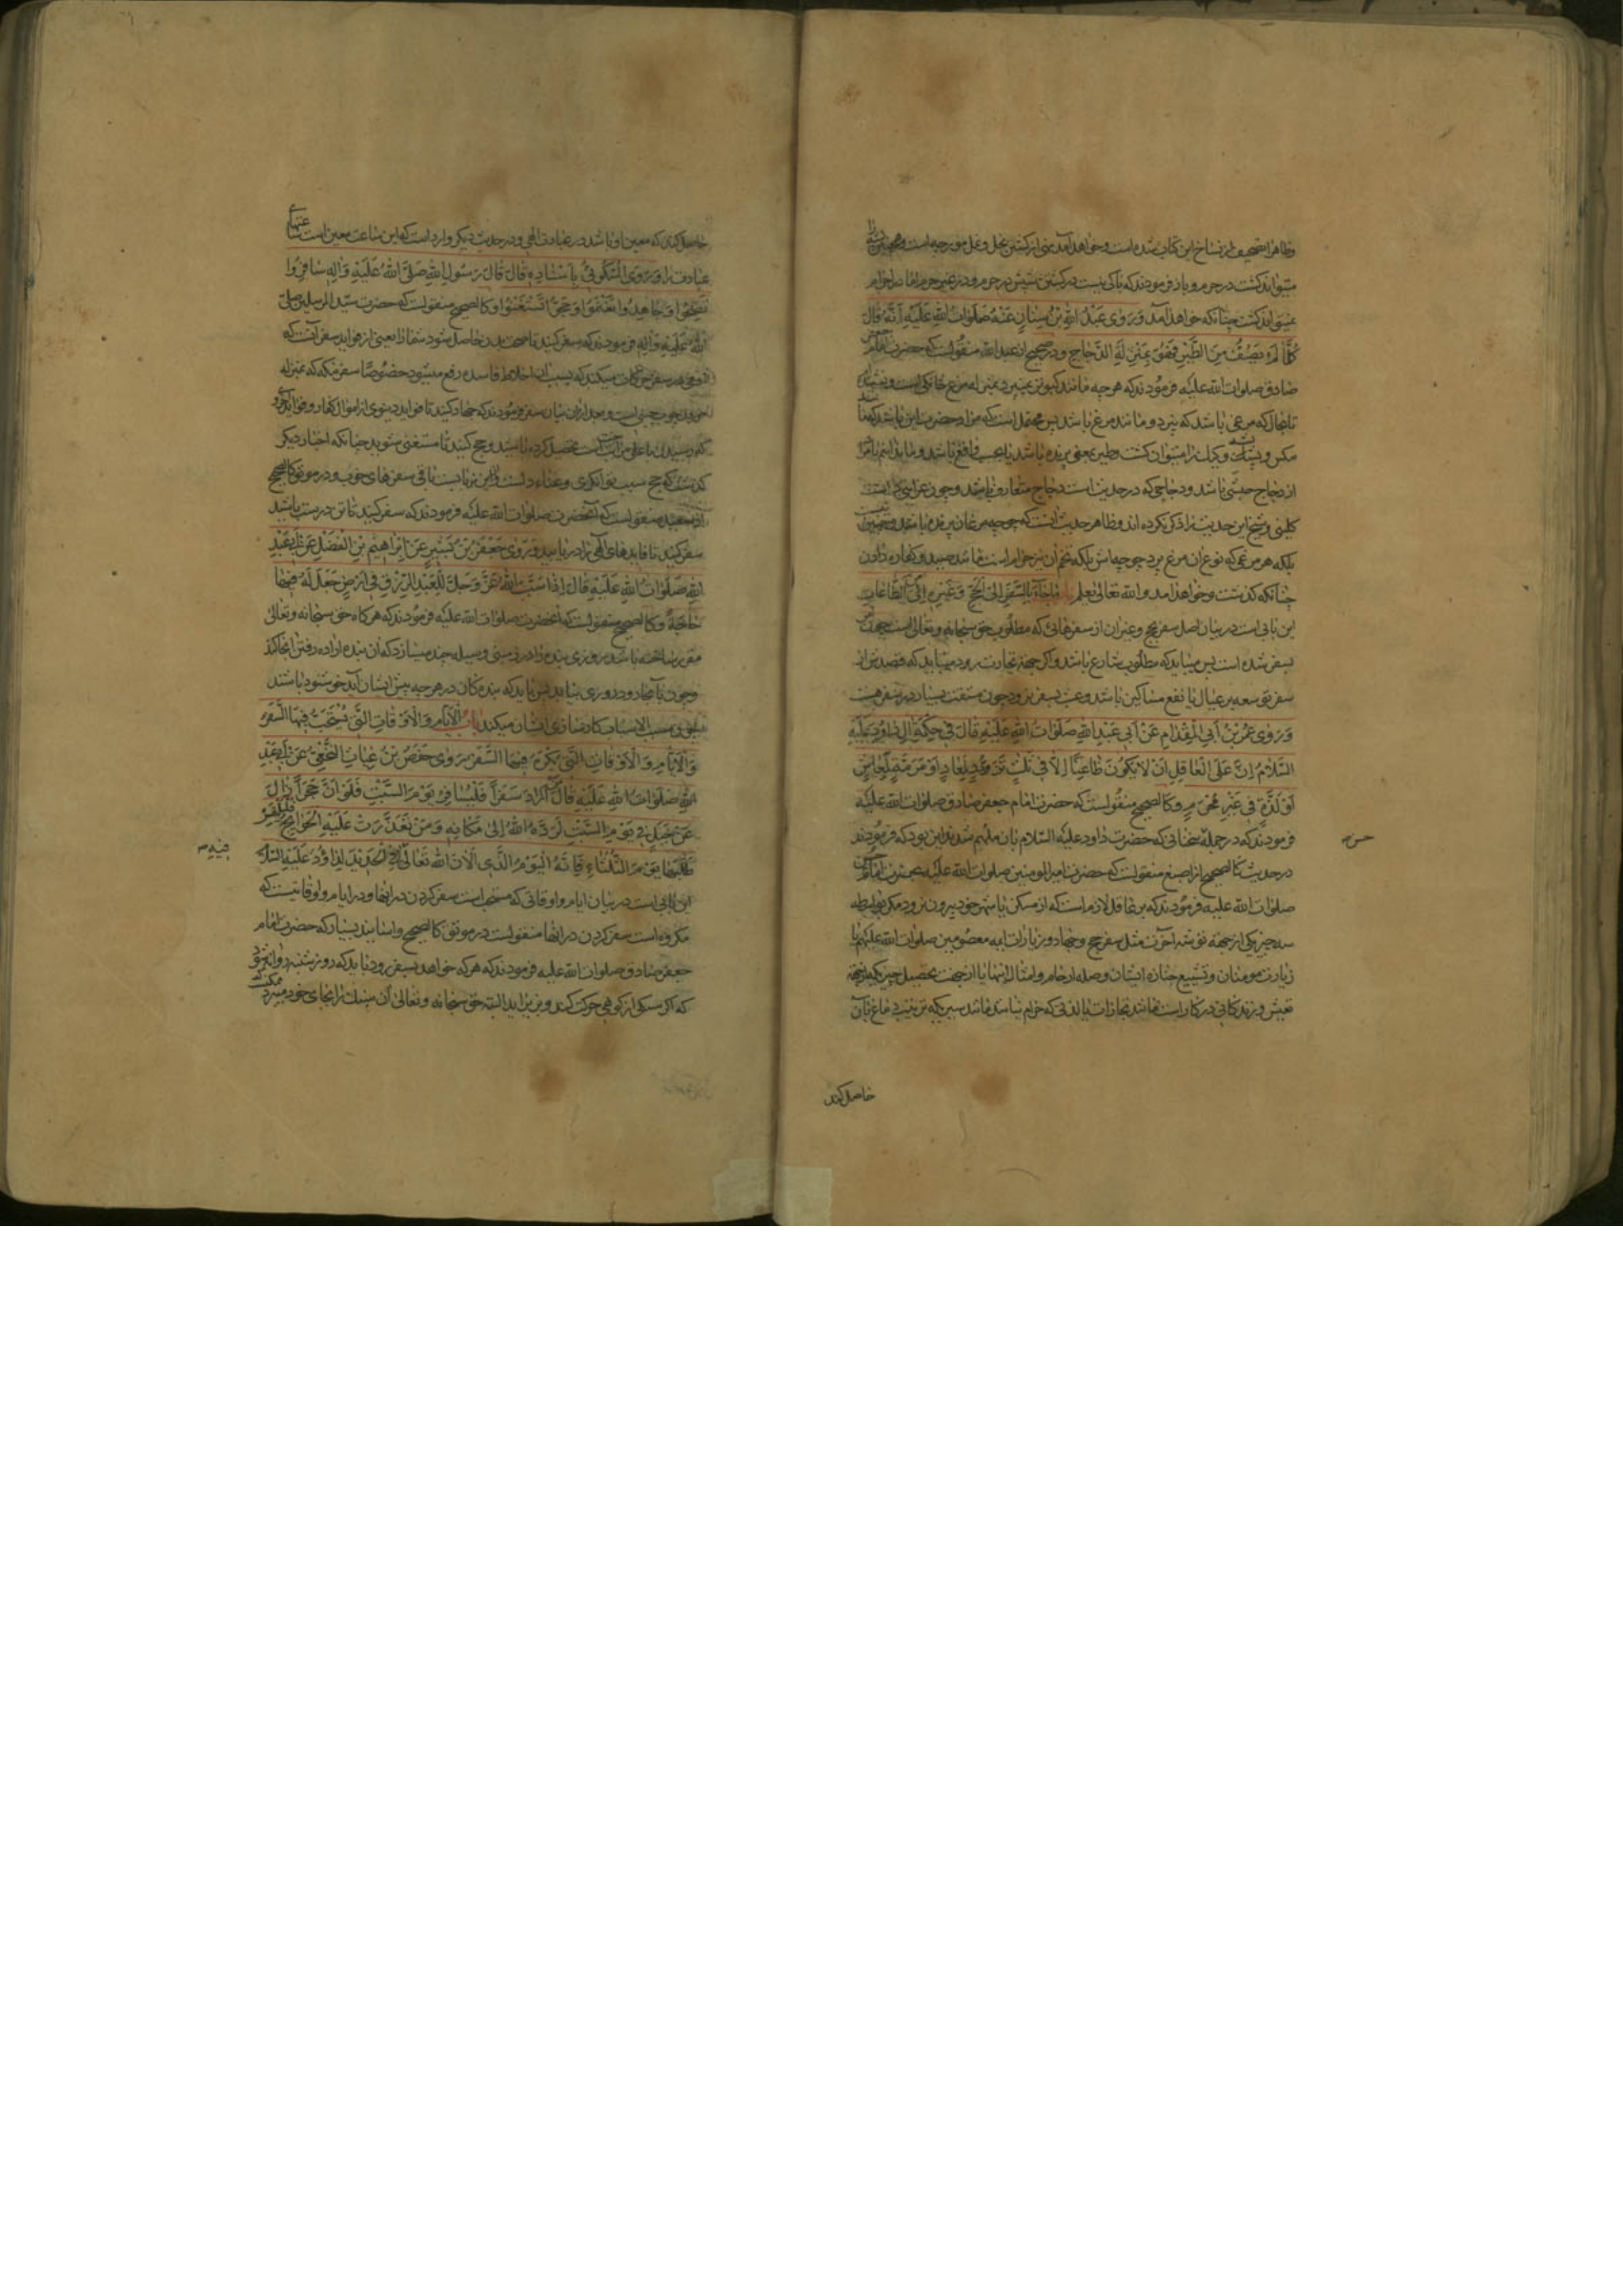 وظاهرا تصحیف از نساخ این کتاب شده است وخواهد آمد نهی از کشتن نحل ونمل ومورچه است وهمچنین
میتواند کشت در حرم وباز فرمودند که باکی نیست در کشتن شپش در حرم ودر غیر حرم اما در احرام
نمیتواند کشت چنانکه خواهد آمد وَرَوٰی عَبْدُ اللهِ بْنُ سِنٰانٍ عَنْهُ صَلَوٰاتُ اللهِ عَلَیْهِ أَنَّهُ قٰالَ
كُلُّ مٰا لَمْ یَصُفَّ مِنَ الطَّیْرِ فَهُوَ بِمَنْزِلَةِ الدَّجٰاجِ ودر صحیح از عبد الله منقولست که حضرت امام جعفر
صادق صلوات الله علیه فرمودند که هر چه مانند کبوتر نمیپرد بمنزله مرغ خانکی است
تا انجا که مرغی باشد که بپرد ومانند مرغ باشد پس محتمل است که مراد حضرت این باشد که
مکس وپشه وکیک را میتوان کشت وطیر بمعنی پرنده باشد
از دجاج حبشی باشد ودجاجی که در حدیث است دجاج متعارف باشد وچون
کلینی وشیخ این حدیث را ذکر نکرده اند وظاهر حدیث آنست که جوجه مرغان پرنده باشد
بلکه هر مرغی که نوع ان مرغ پرد جوجه اش بلکه تخم ان نیز حرام است مانند صید وکفاره دادن
چنانکه کذشت وخواهد امد والله تعالی یعلم بٰابُ مٰا جٰاءَ فِی السَّفَرِ إِلَی الْحَجِّ وَغَیْرِهِ مِنَ الطّٰاعٰاتِ
این بابی است در بیان اصل سفر حج وغیر ان از سفرهائی که مطلوب حق سبحانه وتعالی است چون
بسفر شده است پس میباید که مطلوب شارع باشد واکر جهة تجارت رود میباید که قصدش از
سفر توسعه بر عیال یا نفع مساکین باشد وعبث بسفر نرود چون مشقت بسیار در سفر هست
وَرَوٰی عَمْرُو بْنُ أَبِی الْمِقْدٰامِ عَنْ أَبِی عَبْدِ اللهِ صَلَوٰاتُ اللهِ عَلَیْهِ قٰالَ فِی حِكْمَةِ اٰلِ دٰاوُدَ عَلَیْهِ
السَّلٰامُ إِنَّ عَلَی الْعٰاقِلِ أَنْ لٰا یَكُونَ ظٰاعِنًا إِلّٰا فِی ثَلٰثٍ تَزَوُّدٍ لِمَعٰادٍ أَوْ مَرَمَّةٍ لِمَعٰاشٍ
أَوْ لَذَّةٍ فِی غَیْرِ مُحَرَّمٍ وکالصحیح منقولست که حضرت امام جعفر صادق صلوات الله علیه
فرمودند که در جمله سخنانی که حضرت داود علیه السلام بان ملهم شدند این بود که فرمودند
در حدیث کالصحیح از اصبغ منقولست که حضرت امیر المومنین صلوات الله علیه بحضرت امام حسن
صلوات الله علیه فرمودند که بر عاقل لازم است که از مسکن یا شهر خود بیرون نرود مکر بواسطه
سه چیز یکی از جهة توشه آخرت مثل سفر حج وجهاد وزیارات ائمه معصومین صلوات الله علیهم یا
زیارت مومنان وتشییع جنازه ایشان وصله ارحام وامثال اینها یا از جهت تحصیل چیزی که از جهة
تعیش وزندکانی در کار است مانند تجارات یا لذتی که حرام نباشد مانند سیری که تربیت دماغ بآن
حسن
حاصل کند
حاصل کند که معین او باشد در عبادت الهی ودر حدیث دیکر وارد است که این ساعت معین است ساعتهای
عبادت را وَرَوَی السَّكُونِیُّ بِإِسْنٰادِهِ قٰالَ قٰالَ رَسُولُ اللهِ صَلَّی اللهُ عَلَیْهِ وَاٰلِهِ سٰافِرُوا
تَصِحُّوا وَجٰاهِدُوا تَغْنَمُوا وَحُجُّوا تَسْتَغْنُوا وکالصحیح منقولست که حضرت سید المرسلین صلی
الله علیه واله فرمودند که سفر کنید تا صحت بدن حاصل شود شما را یعنی از فواید سفر آنست که
در سفر حرکات میکند که بسبب آن اخلاط فاسده رفع میشود خصوصا سفر مکه که بمنزله
است وبعد از ان بیان سفر فرمودند که جهاد کنید تا فواید دنیوی از اموال کفار وفواید اخروی
که رسیدن باعلی مراتب است تحصیل کرده باشید وحج کنید تا مستغنی شوید چنانکه اخبار دیکر
کذشت که حج سبب توانکری وغناء دلست واین نیابت باقی سفرهای خوب ودر موثق کالصحیح
از سعید منقولست که آنحضرت صلوات الله علیه فرمودند که سفر کنید تا تن درست باشید
سفر کنید تا فایدهای الهی را دریابید وَرَوٰی جَعْفَرُ بْنُ بَشِیرٍ عَنْ إِبْرٰاهِیمَ بْنِ الْفَضْلِ عَنْ أَبِی عَبْدِ
اللهِ صَلَوٰاتُ اللهِ عَلَیْهِ قٰالَ إِذٰا سَبَّبَ اللهُ عَزَّ وَجَلَّ لِلْعَبْدِ الرِّزْقَ فِی أَرْضٍ جَعَلَ لَهُ فِیهٰا
حٰاجَةً وکالصحیح منقولست که آنحضرت صلوات الله علیه فرمودند که هر کاه حق سبحانه وتعالی
مقرر ساخته باشد روزی بنده را در زمینی وسیله چند میسازد که ان بنده اراده رفتن انجا کند
وچون بآنجا رود روزی بیابد پس باید که بندکان در هر چه پیش ایشان آید خوشنود باشند
مسبب الاسباب کارسازی ایشان میکند بٰابُ الْأَیّٰامِ وَالْأَوْقٰاتِ الَّتِی یُسْتَحَبُّ فِیهَا السَّفَرُ
وَالْأَیّٰامِ وَالْأَوْقٰاتِ الَّتِی یُكْرَهُ فِیهَا السَّفَرُ رَوٰی حَفْصُ بْنُ غِیٰاثٍ النَّخَعِیُّ عَنْ أَبِی عَبْدِ
اللهِ صَلَوٰاتُ اللهِ عَلَیْهِ قٰالَ مَنْ أَرٰادَ سَفَرًا فَلْیُسٰافِرْ یَوْمَ السَّبْتِ فَلَوْ أَنَّ حَجَرًا زٰالَ
عَنْ جَبَلٍ فِی یَوْمِ السَّبْتِ لَرَدَّهُ اللهُ إِلٰی مَكٰانِهِ وَمَنْ تَعَذَّرَتْ عَلَیْهِ الْحَوٰائِجُ فَلْیَلْتَمِسْ
طَلَبَهٰا یَوْمَ الثَّلٰثٰاءِ فَإِنَّهُ الْیَوْمُ الَّذِی أَلٰانَ اللهُ تَعٰالٰی فِیهِ الْحَدِیدَ لِدٰاوُدَ عَلَیْهِ السَّلٰامُ
این بابی است در بیان ایام واوقاتی که مستحب است سفر کردن در انها ودر ایام واوقاتیست که
مکروه است سفر کردن در انها منقولست در موثق کالصحیح واسانید بسیار که حضرت امام
جعفر صادق صلوات الله علیه فرمودند که هر که خواهد بسفر رود باید که روز شنبه روانه شود
که اکر سنکی از کوهی حرکت کند وبزیر اید البته حق سبحانه وتعالی آن سنک را بجای خود میبرد